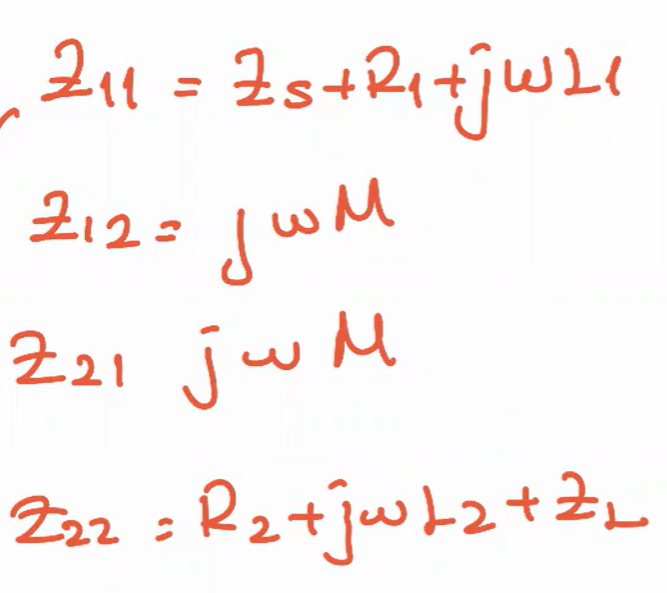 Z11 = Zs+R1+jwL1
Z12 = jwM
Z21 jwM
Z22 = R2+jwL2+ZL